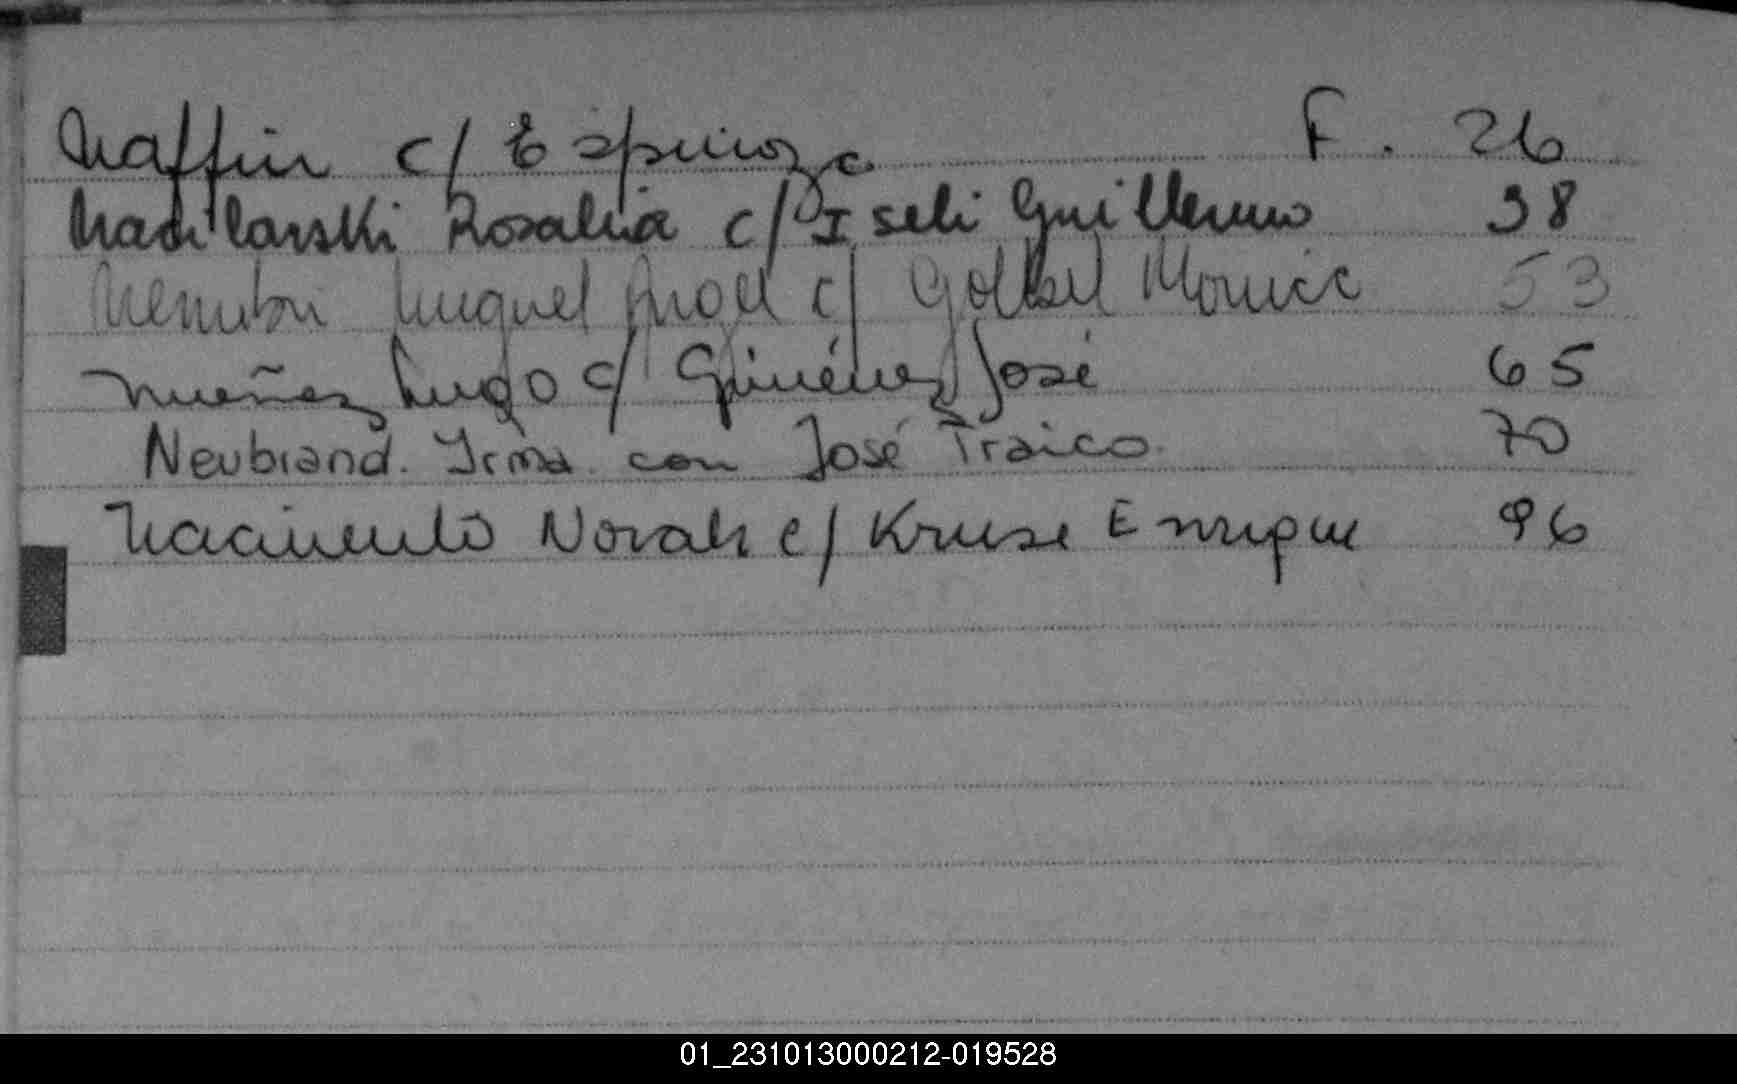 Naffin c/ Espinoza F. 26
Nadilarski Rosalia c/ Iseli Guillermo 38
Miguel Angel c/ Monica 53
Nueñez Hugo c/ Giménez José 65
Neubrand. Irma con José Traico. 70
Nacimento Norah c/ Kruse Enrique 96
01_231013000212-019528